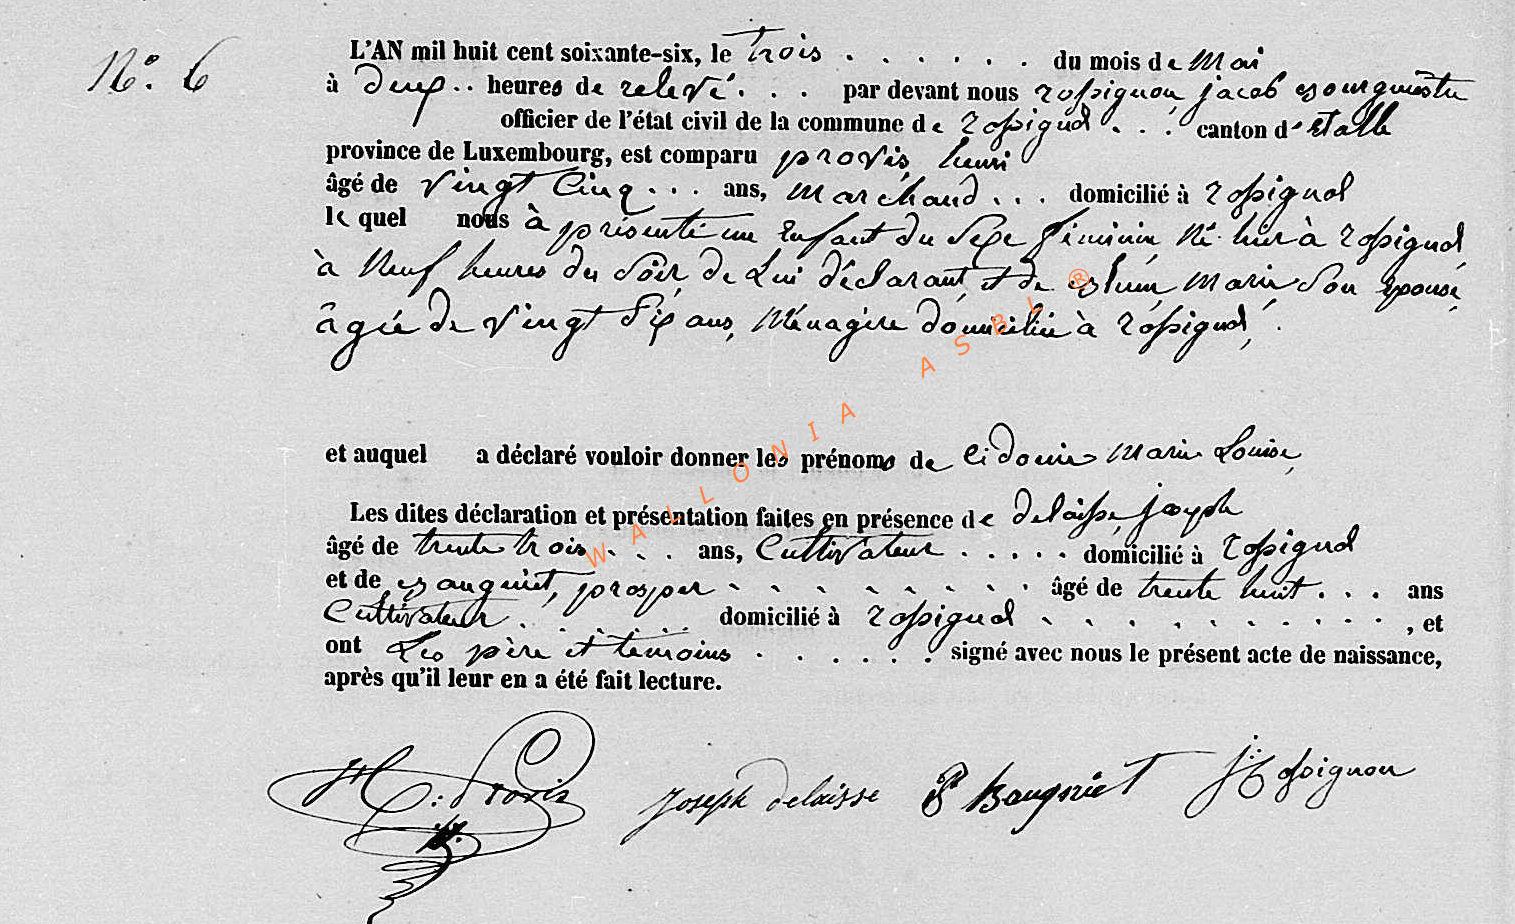 N°. 6
L'AN mil huit cent soixante-six, le trois . . . . . . du mois de mai
à deux .. heures de relevé . . . par devant nous rossignon, jacob bourguestre
officier de l'état civil de la commune de rossignol . . . canton d'étalle
province de Luxembourg, est comparu provis, henri
âgé de vingt cinq . . . ans, marchand . . . domicilié à rossignol
le quel nous à présenté un enfant du sexe féminin né hier à rossignol
à neuf heures du soir, de lui déclarant, et de marie son épouse,
âgée de vingt six ans, ménagère domiciliée à rossignol,
et auquel a déclaré vouloir donner les prénoms de lidouie marie Louise,
Les dites déclaration et présentation faites en présence de delaisse, joseph
âgé de trente trois . . . ans, Cultivateur . . . . . domicilié à rossignol
et de bauguiet, prosper . . . . . . . . âgé de trente huit . . . ans
Cultivateur . . . . . domicilié à rossignol . . . . . . . . . . , et
ont Les père et témoins . . . . . . signé avec nous le présent acte de naissance,
après qu'il leur en a été fait lecture.
H: Provis Joseph delaisse P Bauguiet J: Rossignon
WALLONIA ASBL ®